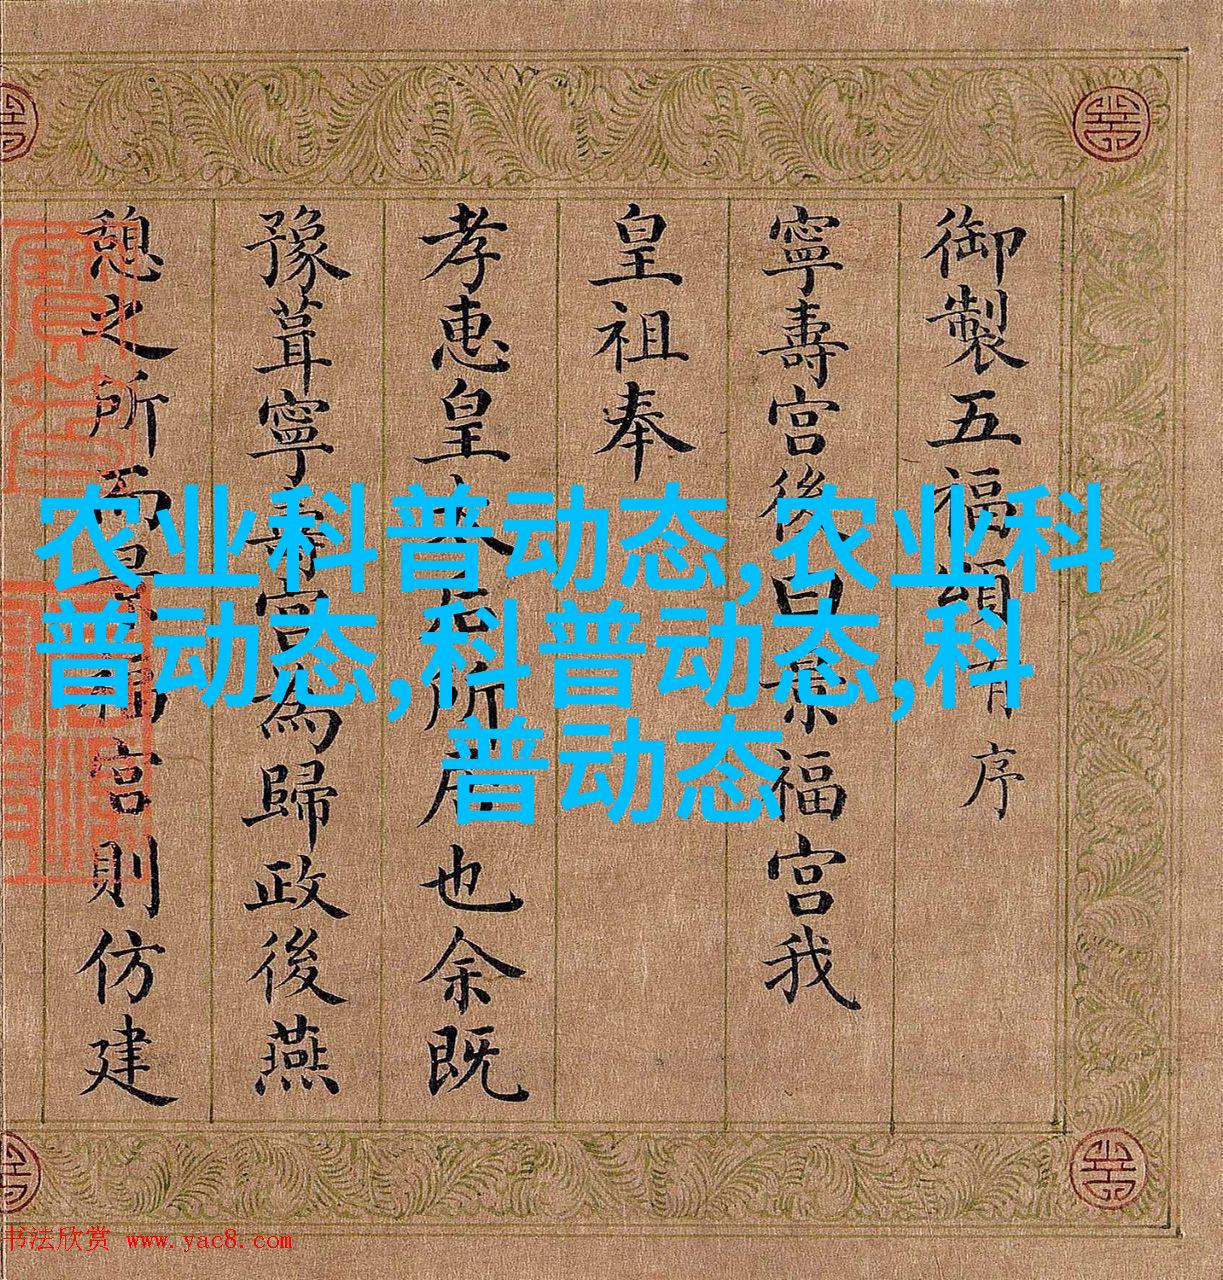 御製五福頌有序
寧壽宮後曰景福宮我
皇祖奉
孝惠皇太后所居也余既
豫葺寧壽宮為歸政後燕
憩之所而景福宮則仿建
农业科普动态,农业科
普动态,科普动态,科
普动态
书法欣赏 www.yac8.com